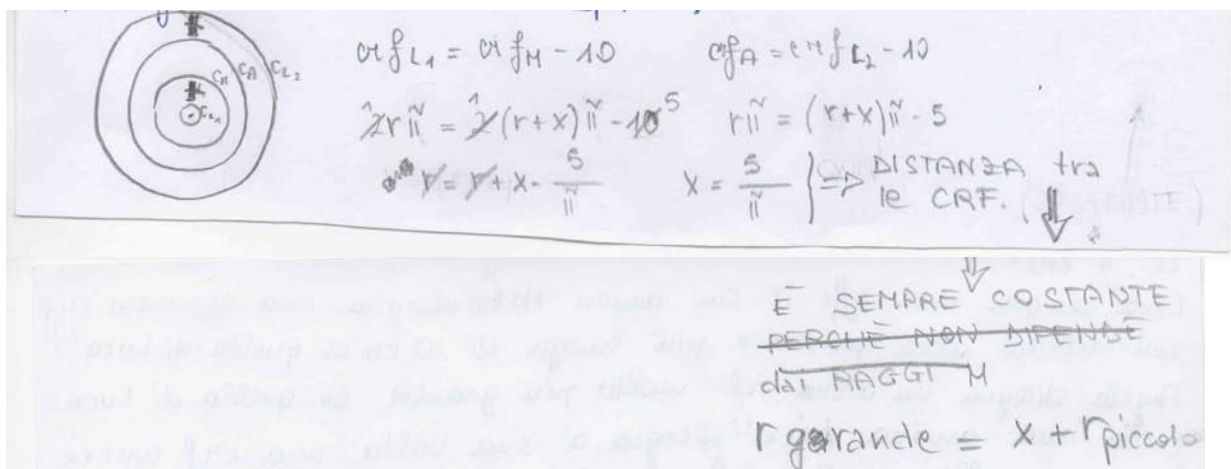 C_M C_A C_{L_2}
C_{L_1}
crf_{L_1} = crf_M - 10 crf_A = crf_{L_2} - 10
2rπ = 2(r+x)π - 10 5 rπ = (r+x)π - 5
r = r + x - 5/π x = 5/π ⇒ DISTANZA tra
le CRF. ⇓
⇓
È SEMPRE COSTANTE
PERCHÈ NON DIPENDE
dai RAGGI
r grande = x + r piccolo